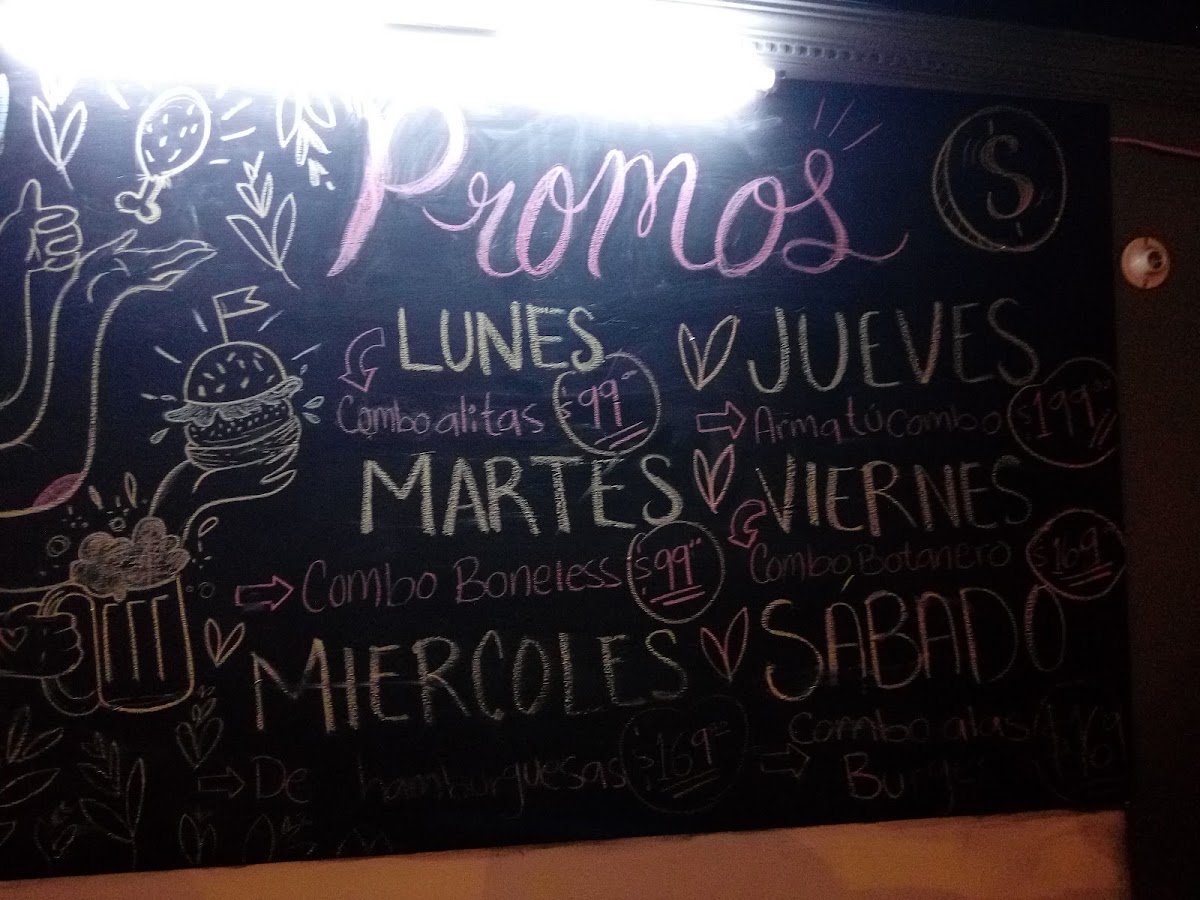 Promos
$
LUNES
Combo alitas $99
MARTES
Combo Boneless $99
MIERCOLES
De hamburguesas $169
JUEVES
Arma tú combo $199
VIERNES
Combo Botanero $169
SÁBADO
Combo alas $169